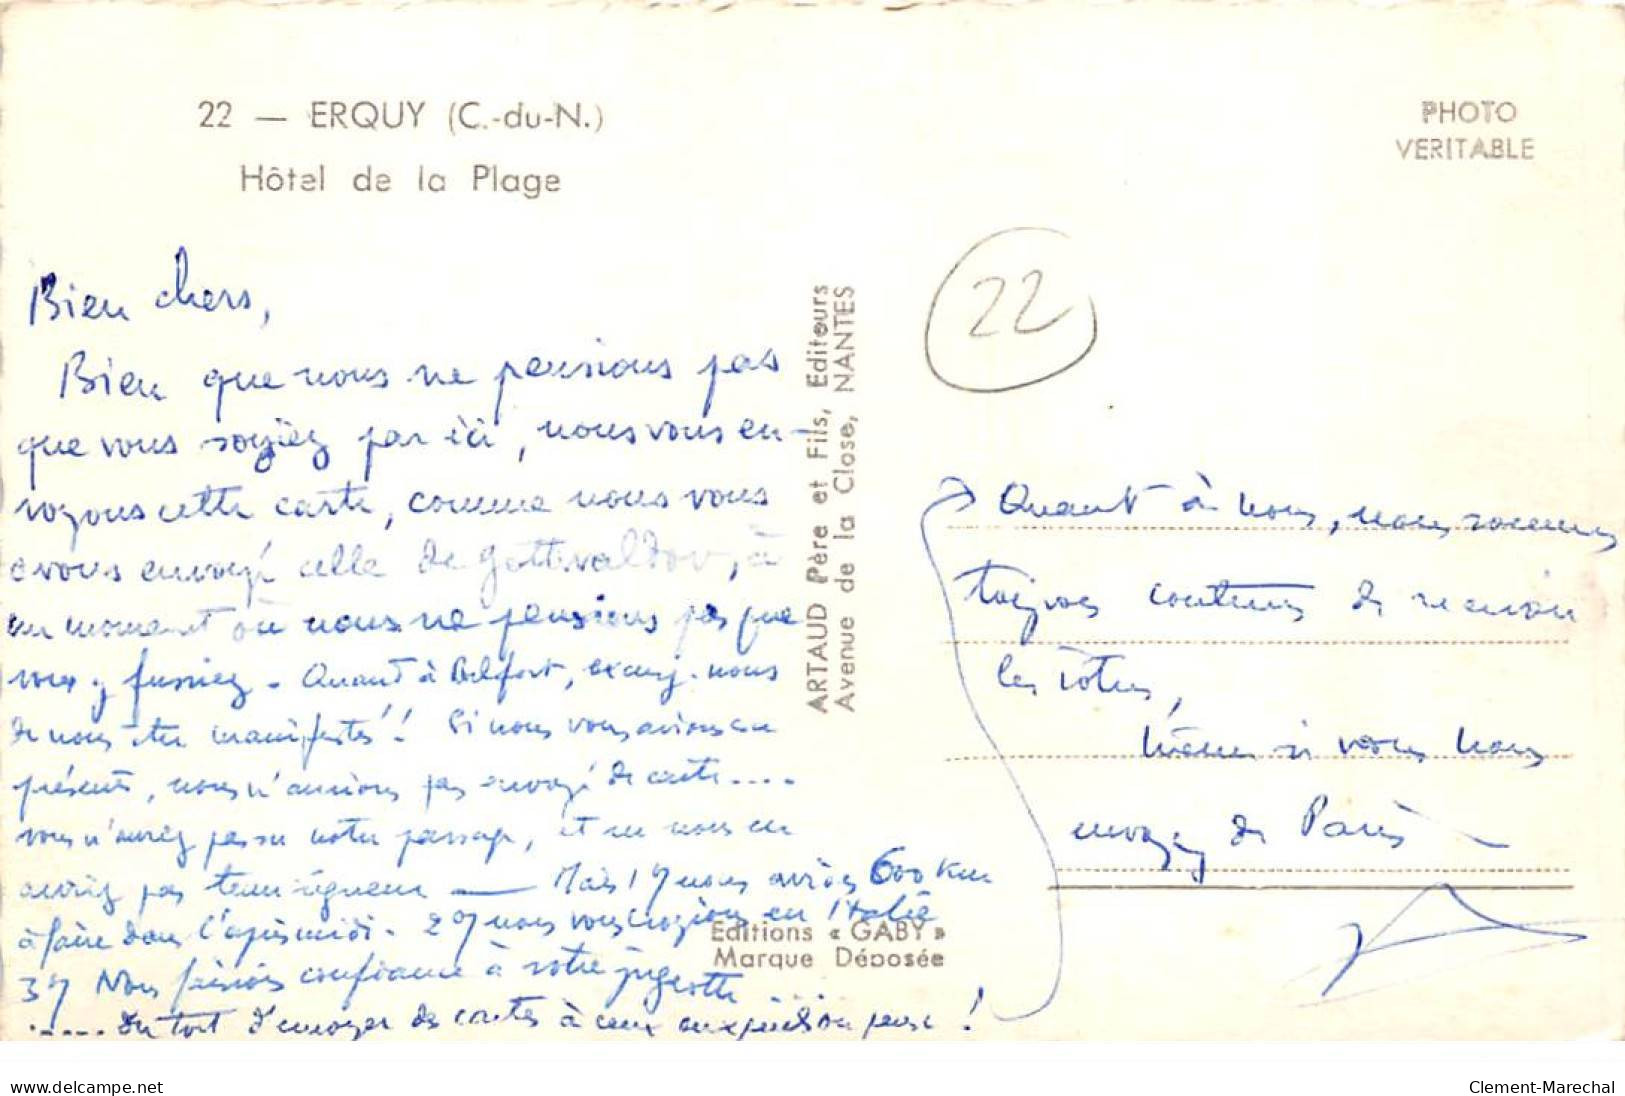 22 — ERQUY (C.-du-N.)
Hôtel de la Plage
PHOTO
VERITABLE
22
Bien chers,
Bien que nous ne pensions pas
que vous soyiez par ici, nous vous en-
voyons cette carte, comme nous vous
avons envoyé celle de Gottwaldov, à
un moment où nous ne pensions pas que
vous y fussiez. Quant à Belfort, excusez-nous
de nous être manifestés!! Si nous vous avions su
présents, nous n'aurions pas envoyé de carte....
vous n'auriez pas su notre passage, et ne nous en
auriez pas tenu rigueur — Mais 1°/ nous avions 600 km
à faire dans l'après midi. 2°/ nous vous croyions en Italie
3°/ Nous faisions confiance à votre jugeotte ....
..... Du tort d'envoyer des cartes à ceux auxquels on pense !
ARTAUD Père et Fils, Editeurs
Avenue de la Close, NANTES
Editions « GABY »
Marque Déposée
Quant à nous, nous sommes
toujours contents de recevoir
les vôtres,
Même si vous nous
envoyez de Paris
delcampe.net
Clement-Marechal